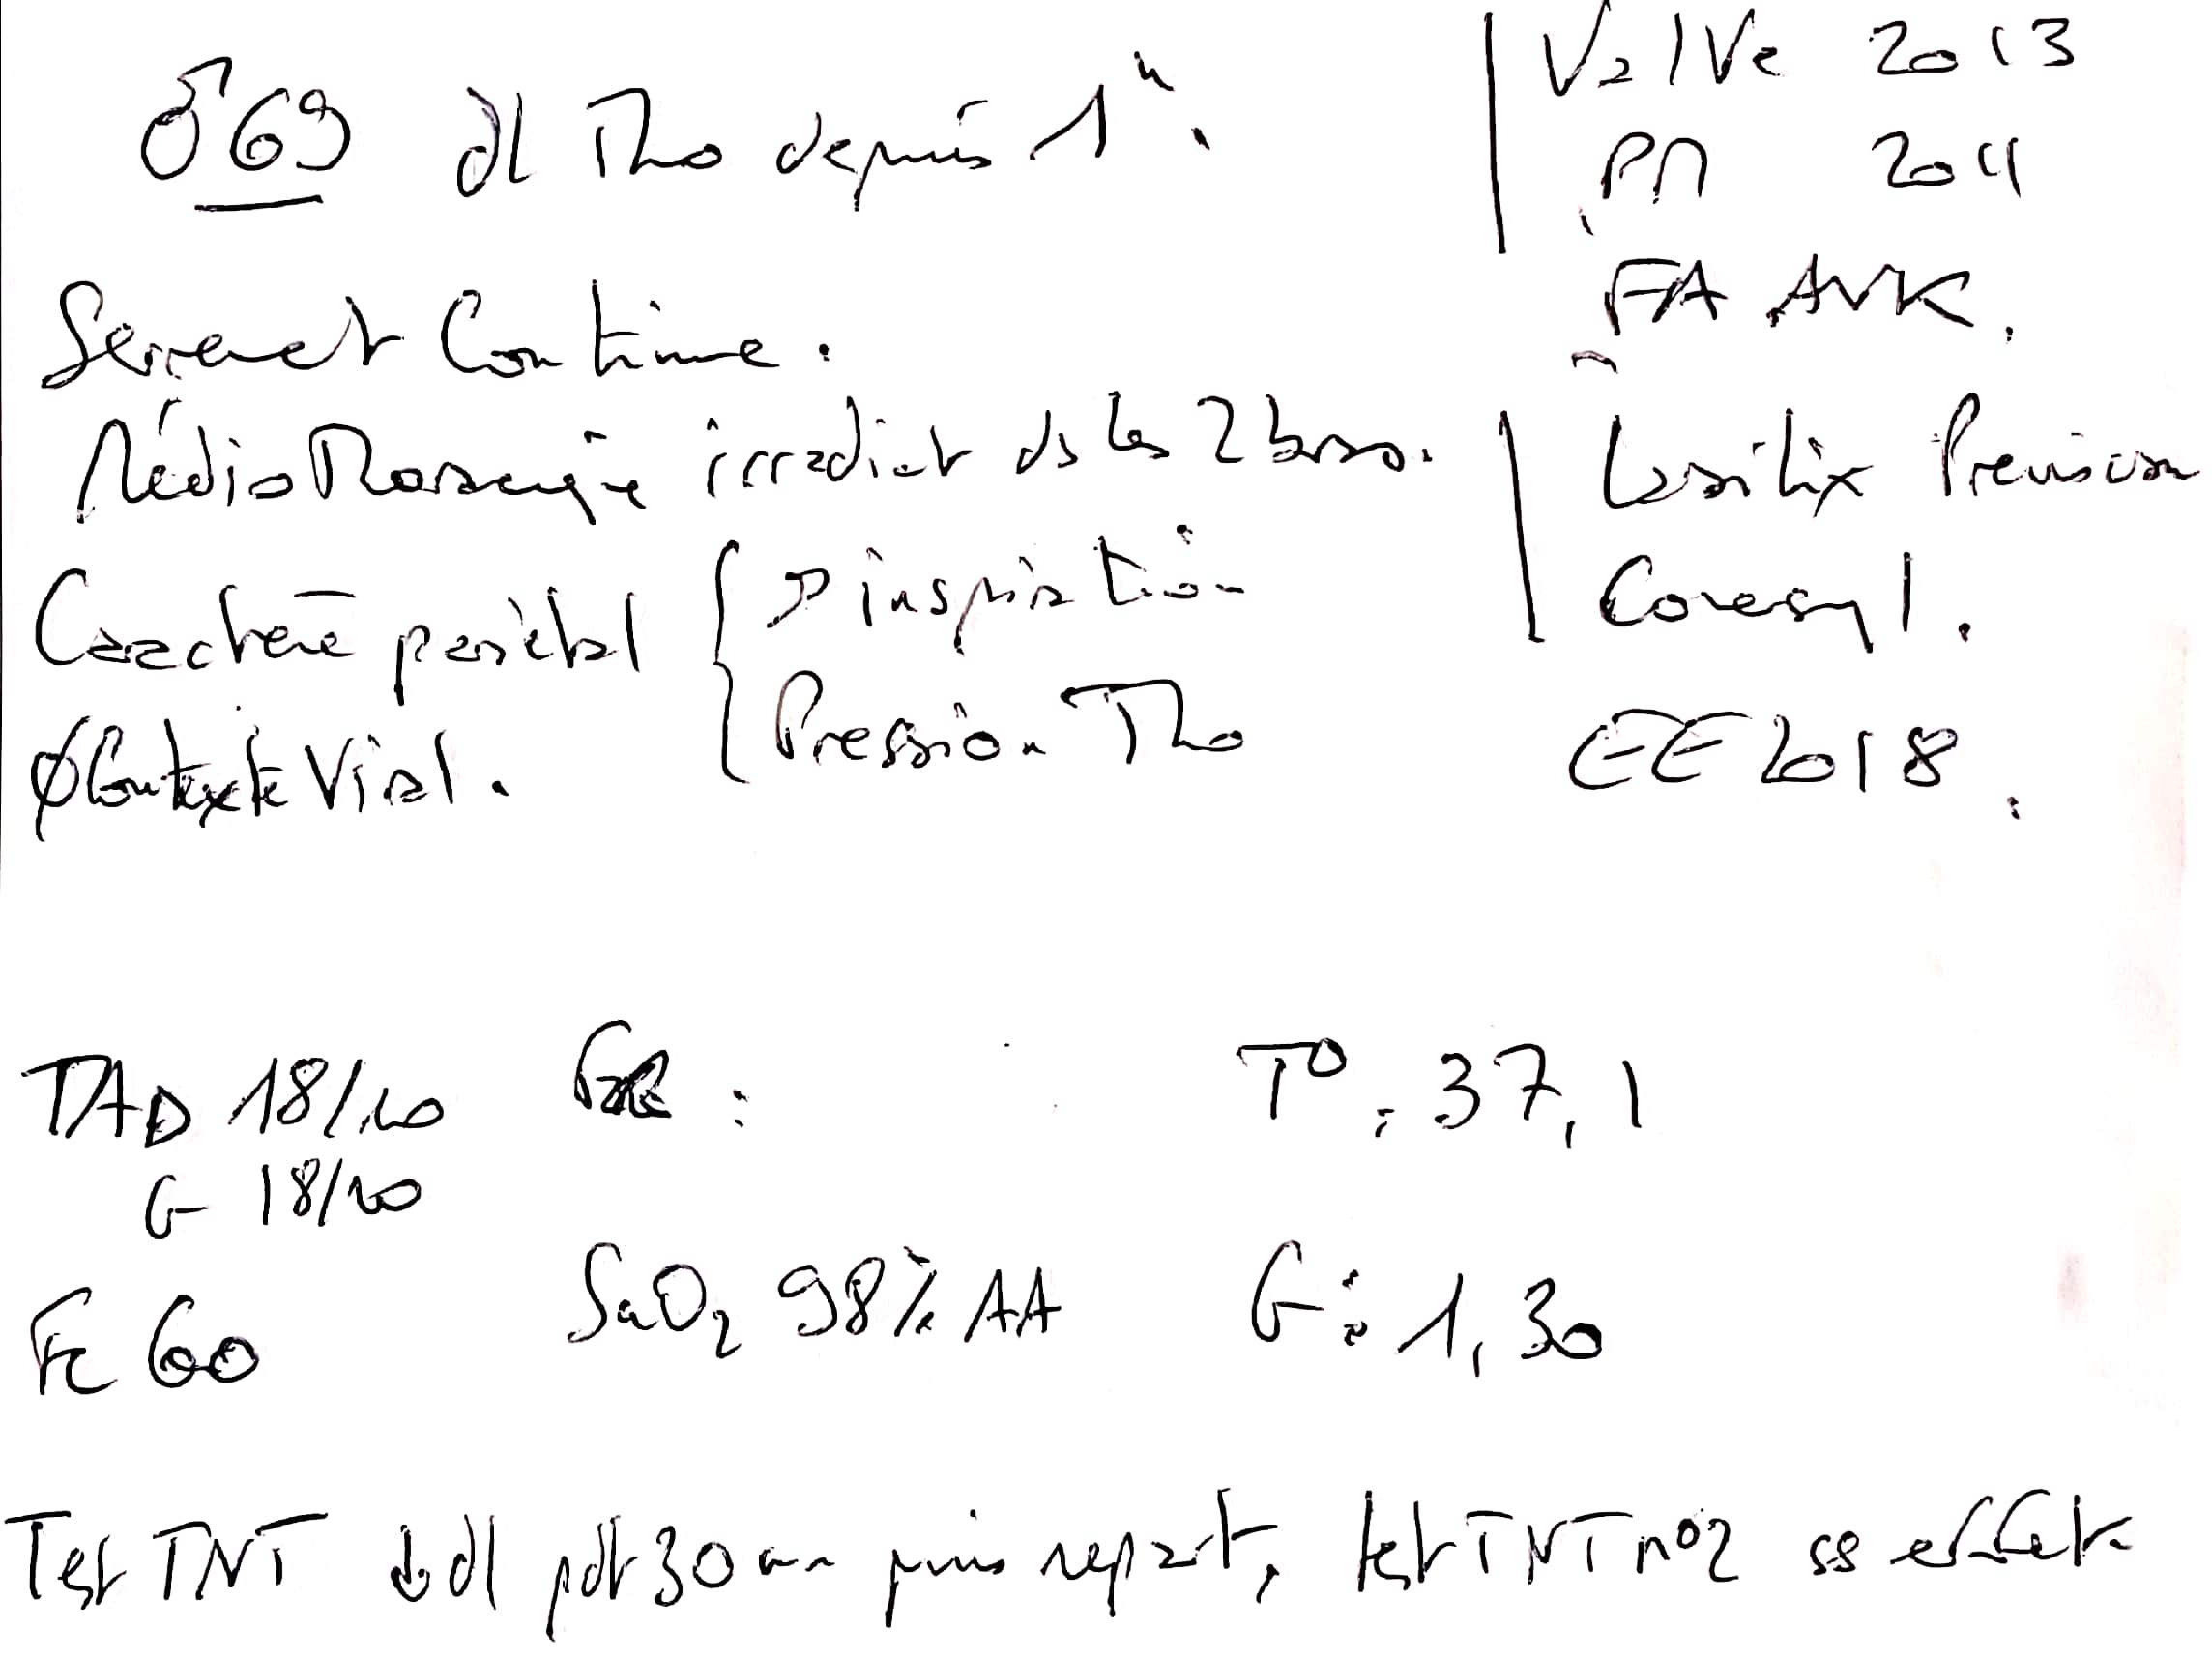 ♂69 dl Tho depuis 1h.
Serrement Continue.
MédioThoracique irradiant ds les 2 bras.
Caractère pariétal { inspiration
Pression Tho
Ø Contexte Viral.
Valve 2013
PM 2011
FA AVK.
Lasilix Previscan
Coversyl.
EE 2018.
TAD 18/10 T° : 37,1
G 18/10
Fc 60 SaO2 98% AA G : 1,30
Test TNT ↓ dl pdt 30 mn puis repart, test TNT n°2 ss effet